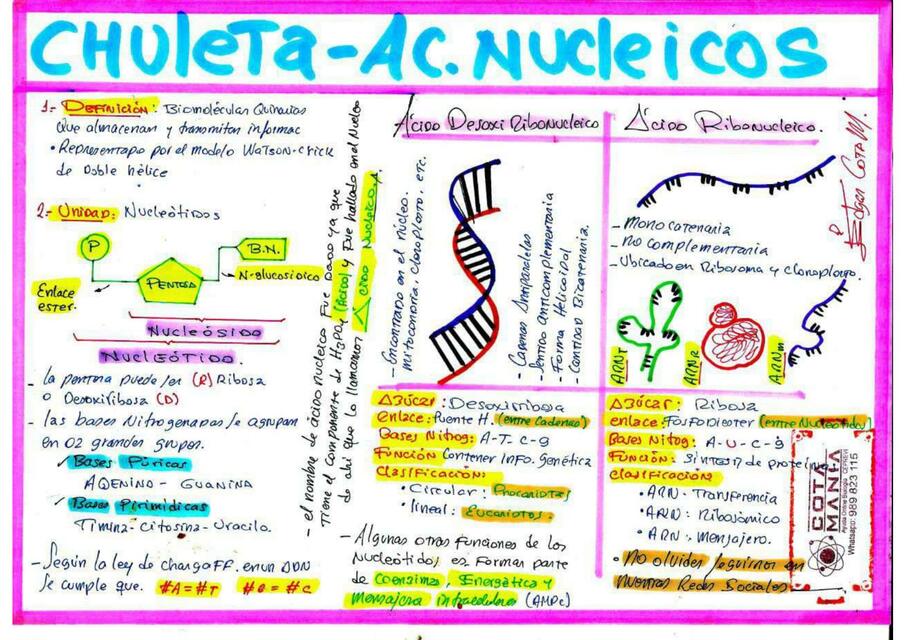 CHULETA-AC.NUCLEICOS
1- DEFINICIÓN: Biomoléculas Químicas
que almacenan y transmiten informac
• Representado por el modelo WATSON-CRICK
de Doble hélice
2- Unidad: Nucleótidos
P
B.N.
PENTOSA
N-glucosídico
Enlace
ester.
Nucleósido
NUCLEÓTIDO.
- la pentosa puede ser (R) Ribosa
o Desoxirribosa (D)
- las bases Nitrogenadas se agrupan
en 02 grandes grupos.
✓ Bases Púricas
ADENINO - GUANINA
✓ Bases Pirimídicas
Timina-Citosina-Uracilo.
- Según la ley de chargoFF. en un ADN
se cumple que. #A=#T #G=#C
- el nombre de ácido nucleico fue dado ya que
tiene el componente de H3PO4 (Ácido) y fue hallado en el Nucleo
de ahí que lo llamaron Ácido Nucleico.
Ácido Desoxi Ribonucleico
- Encontrado en el núcleo.
mitocondria, cloroplasto, etc.
- Cadenas Antiparalelas
- Sentido Anticomplementaria
- Forma Helicoidal
- Cantidad Bicatenaria.
AZÚCAR: Desoxirribosa
enlace: Puente H. (entre Cadenas)
Bases Nitrog: A-T. C-G
FUNCIÓN Contener Info. Genética
Clasificación:
• Circular: Procariotas
• lineal: Eucariotas.
- Algunas otras funciones de los
Nucleótidos, es Formar parte
de Coenzimas, Energética y
Mensajera intracelular (AMPc)
Ácido Ribonucleico.
Edgar Cota M.
- Monocatenaria
- No complementaria
- Ubicado en Ribosoma y cloroplasto.
ARNT
ARNR
ARNm
AZÚCAR: Ribosa
enlace: Fosfodiester (entre Nucleótidos)
Bases Nitog: A-U-C-G
Función: Síntesis de proteína
clasificación
• ARN-Transferencia
• ARN: Ribosómico
• ARN: Mensajero.
• No olvides seguirnos en
nuestras Redes Sociales
COTA
MANIA
Whatsapp: 989 823 115